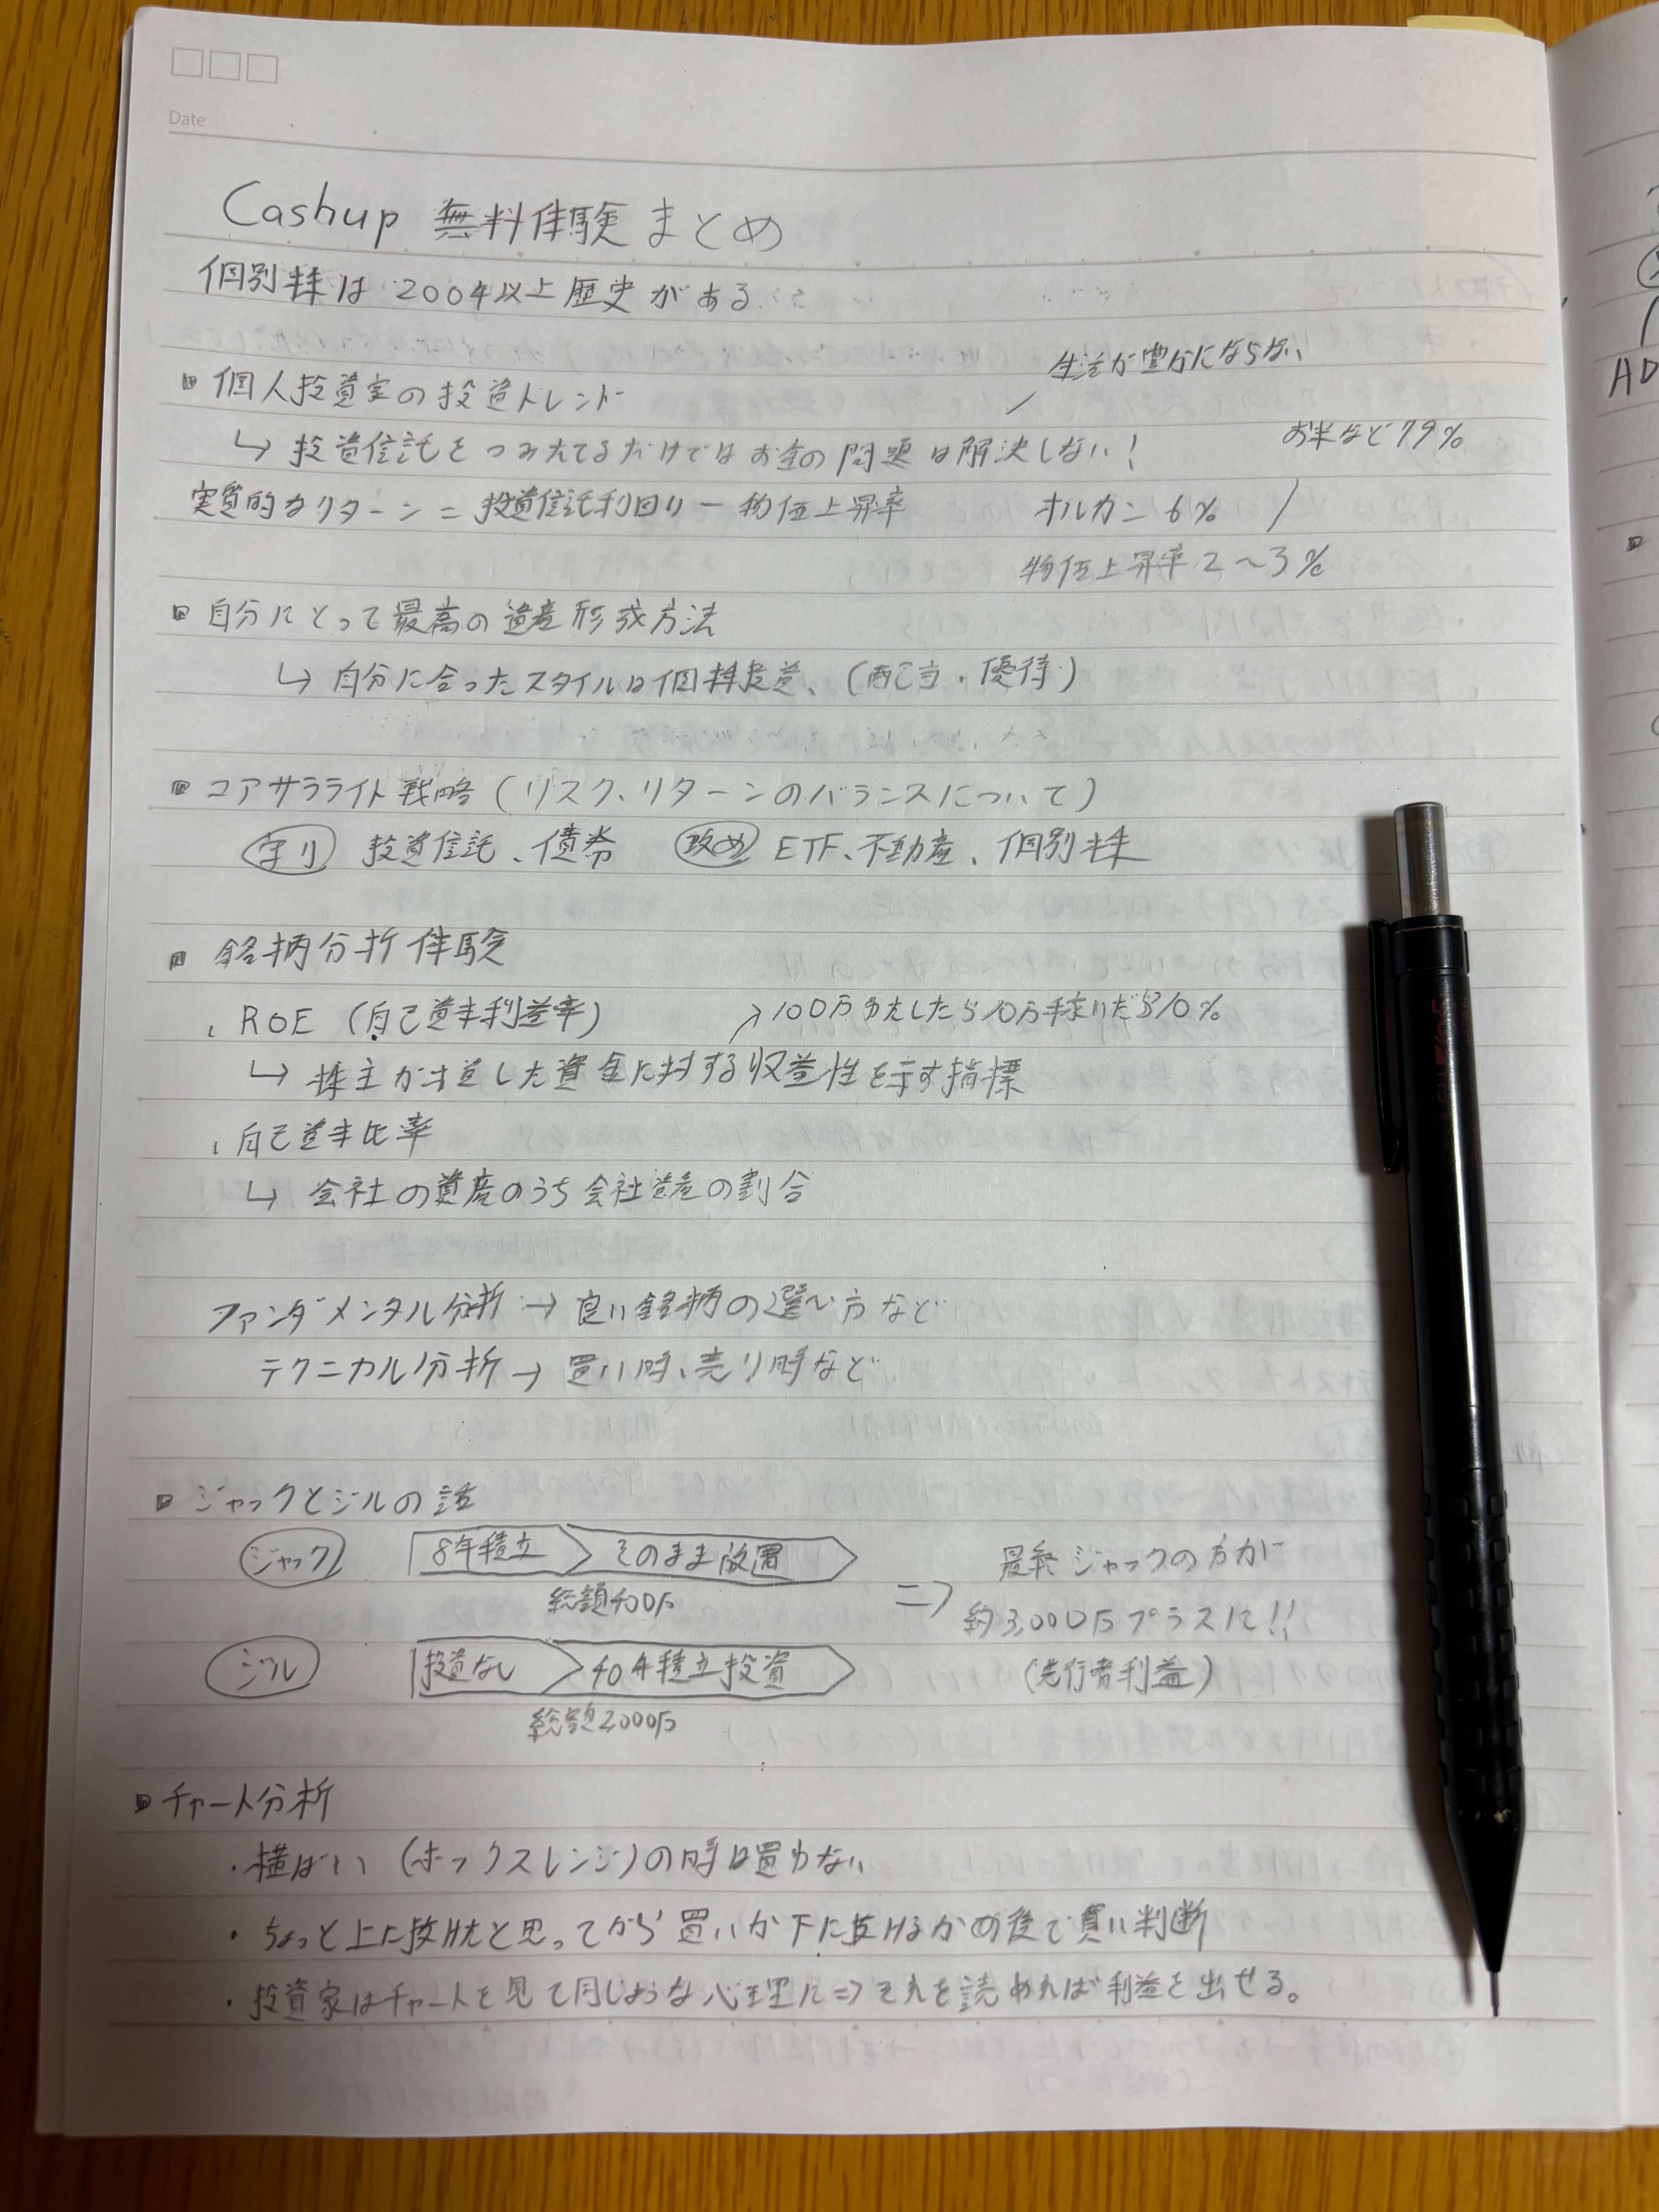 Date
Cashup 無料体験まとめ
個別株は200年以上歴史がある
生活が豊かにならない
▪ 個人投資家の投資トレンド
お米など79%
↳ 投資信託をつみたてるだけではお金の問題は解決しない！
実質的なリターン = 投資信託利回り − 物価上昇率
オルカン 6%
物価上昇率 2〜3%
▪ 自分にとって最高の資産形成方法
↳ 自分に合ったスタイルは個株投資、(配当・優待)
▪ コアサテライト戦略 (リスク、リターンのバランスについて)
守り 投資信託、債券 攻め ETF、不動産、個別株
▪ 銘柄分析体験
、ROE (自己資本利益率)
↗100万出したら10万稼いだら10%
↳ 株主が出資した資金に対する収益性を示す指標
、自己資本比率
↳ 会社の資産のうち会社資産の割合
ファンダメンタル分析 → 良い銘柄の選び方など
テクニカル分析 → 買い時、売り時など
▪ ジャックとジルの話
ジャック 8年積立 そのまま放置
総額400万
⇒ 最終ジャックの方が
約3,000万プラスに!!
(先行者利益)
ジル 投資なし 40年積立投資
総額2,000万
▪ チャート分析
・横ばい (ボックスレンジ)の時は買わない
・ちょっと上に抜けたと思ってから買いか下に抜けるかの後で買い判断
・投資家はチャートを見て同じような心理に⇒それを読めれば利益を出せる。
AD